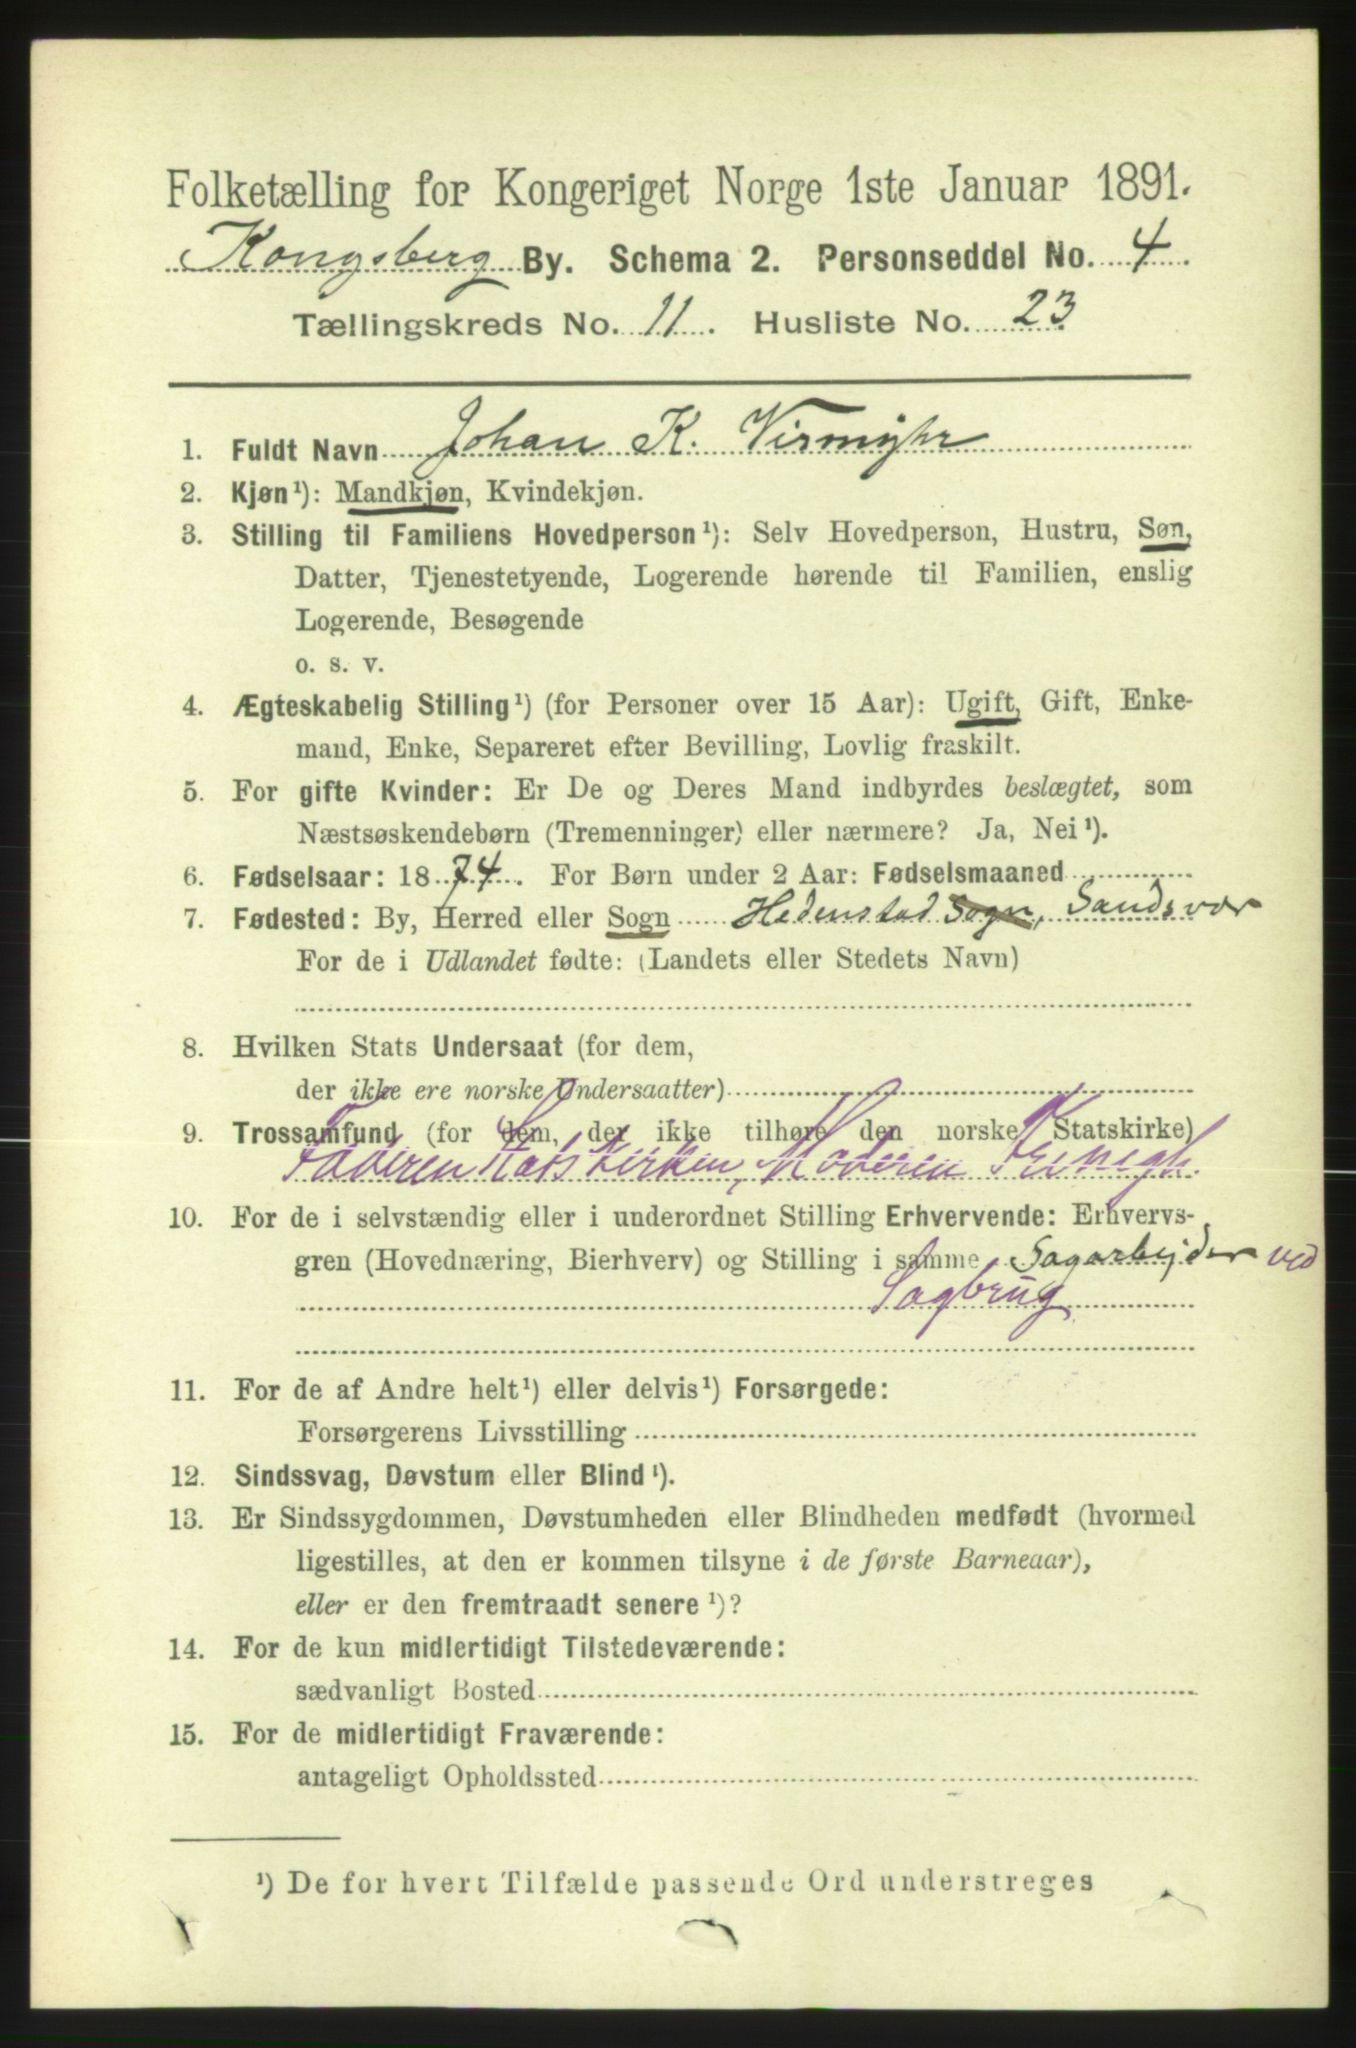 Folketælling for Kongeriget Norge 1ste Januar 1891.
Kongsberg By. Schema 2. Personseddel No. 4.
Tællingskreds No. 11. Husliste No. 23
1. Fuldt Navn Johan K. Virmyhr
2. Kjøn¹): Mandkjøn, Kvindekjøn.
3. Stilling til Familiens Hovedperson¹): Selv Hovedperson, Hustru, Søn,
Datter, Tjenestetyende, Logerende hørende til Familien, enslig
Logerende, Besøgende
o. s. v.
4. Ægteskabelig Stilling¹) (for Personer over 15 Aar): Ugift, Gift, Enke-
mand, Enke, Separeret efter Bevilling, Lovlig fraskilt.
5. For gifte Kvinder: Er De og Deres Mand indbyrdes beslægtet, som
Næstsøskendebørn (Tremenninger) eller nærmere? Ja, Nei¹).
6. Fødselsaar: 1874. For Børn under 2 Aar: Fødselsmaaned
7. Fødested: By, Herred eller Sogn Hedenstad Sogn, Sandsvær
For de i Udlandet fødte: (Landets eller Stedets Navn)
8. Hvilken Stats Undersaat (for dem,
der ikke ere norske Undersaatter)
9. Trossamfund (for dem, der ikke tilhøre den norske Statskirke)
Faderen Statskirken, Moderen
10. For de i selvstændig eller i underordnet Stilling Erhvervende: Erhvervs-
gren (Hovednæring, Bierhverv) og Stilling i samme Sagarbejder ved
Sagbrug
11. For de af Andre helt¹) eller delvis¹) Forsørgede:
Forsørgerens Livsstilling
12. Sindssvag, Døvstum eller Blind¹).
13. Er Sindssygdommen, Døvstumheden eller Blindheden medfødt (hvormed
ligestilles, at den er kommen tilsyne i de første Barneaar),
eller er den fremtraadt senere¹)?
14. For de kun midlertidigt Tilstedeværende:
sædvanligt Bosted
15. For de midlertidigt Fraværende:
antageligt Opholdssted
¹) De for hvert Tilfælde passende Ord understreges